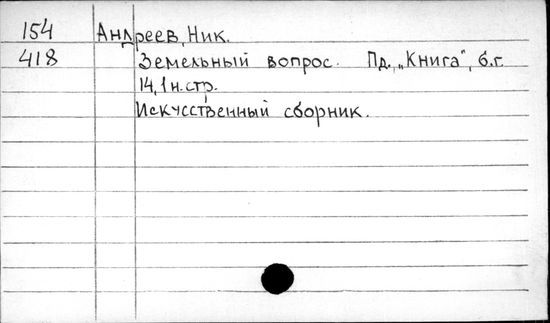 154 Андреев, Ник.
418 Земельный вопрос. Пд., „Книга", б.г.
14,1 н.стр.
Искусственный сборник.